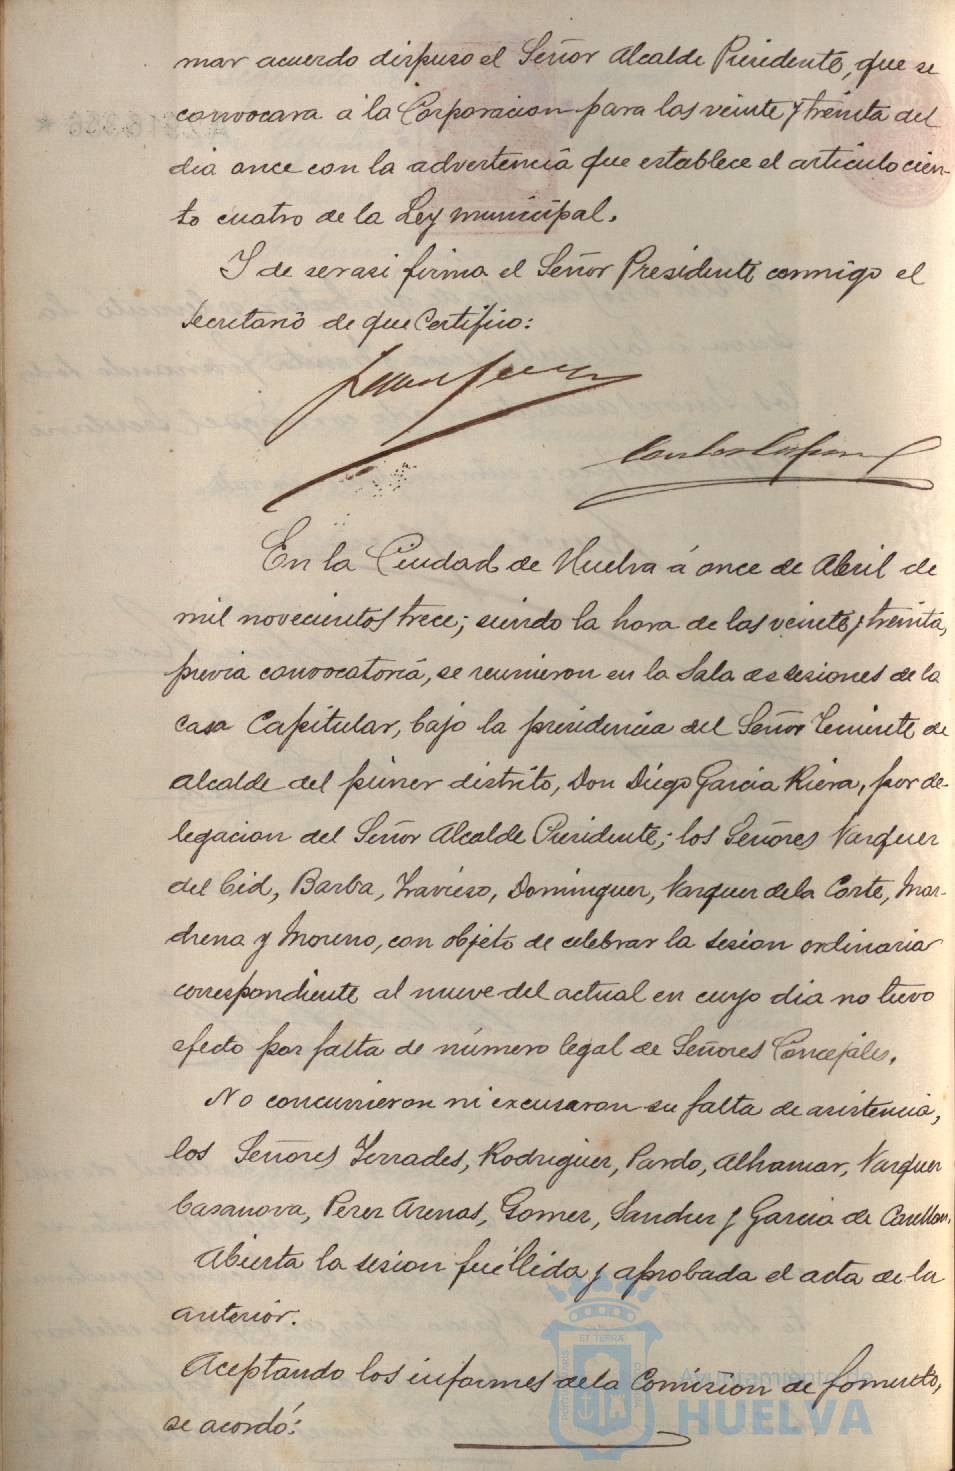 mar acuerdo dispuso el Señor Alcalde Presidente, que se
convocara á la Corporacion para las veinte y treinta del
dia once con la advertencia que establece el articulo cien-
to cuatro de la Ley municipal.
Y de ser asi firma el Señor Presidente conmigo el
Secretario de que Certifico:
En la Ciudad de Huelva á once de Abril de
mil novecientos trece; siendo la hora de las veinte y treinta,
previa convocatoria, se reunieron en la Sala de sesiones de la
casa Capitular, bajo la presidencia del Señor Teniente de
Alcalde del primer distrito, Don Diego Garcia Riera, por de-
legacion del Señor Alcalde Presidente; los Señores Vazquez
del Cid, Barba, Travieso, Dominguez, Vazquez de la Corte, Mar-
chena y Moreno, con objeto de celebrar la sesion ordinaria
correspondiente al nueve del actual en cuyo dia no tuvo
efecto por falta de número legal de Señores Concejales.
No concurrieron ni excusaron su falta de asistencia,
los Señores Terrades, Rodriguez, Pardo, Alhamar, Vazquez
Casanova, Perez Arenas, Gomez, Sanchez y Garcia de
Abierta la sesion fué leida y aprobada el acta de la
anterior.
Aceptando los informes de la Comision de fomento,
se acordó:
Ayuntamiento de
HUELVA